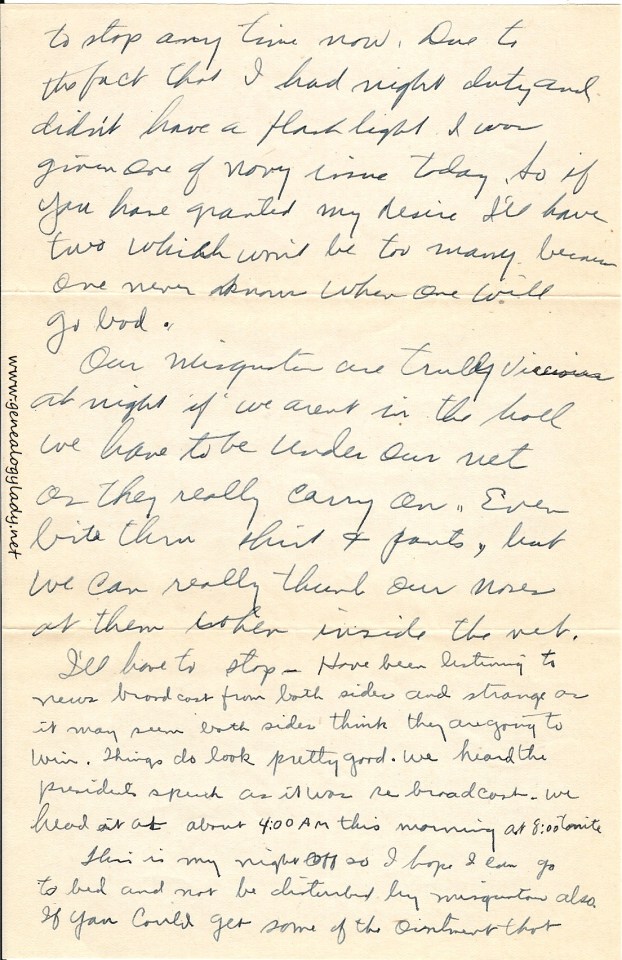 to stop any time now. Due to
the fact that I had night duty and
didn't have a flash light I was
given one of navy issue today. So if
you have granted my desire I'll have
two which won't be too many because
one never knows when one will
go bad.
Our misquitos are trully vicious
at night if we arent in the hall
we have to be under our net
or they really carry on. Even
bite thru shirt & pants, but
we can really thumb our noses
at them when inside the net.
I'll have to stop - Have been listening to
news broadcast from both sides and strange as
it may seem both sides think they are going to
win. Things do look pretty good. We heard the
presidents speech as it was re broadcast. We
heard it at about 4:00 AM this morning at 8:00 tonite
This is my night off so I hope I can go
to bed and not be disturbed by misquitos also.
If you could get some of the ointment that
www.genealogylady.net